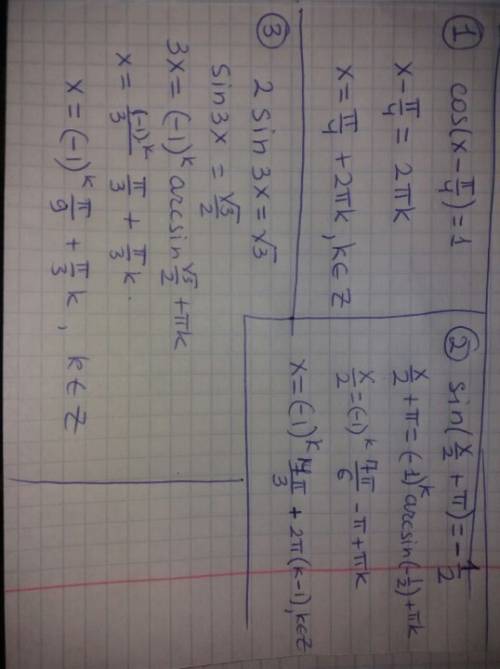 ① cos(x - π/4) = 1
x - π/4 = 2πk
x = π/4 + 2πk, k∈Z
② sin(x/2 + π) = -1/2
x/2 + π = (-1)^k arcsin(-1/2) + πk
x/2 = (-1)^k 7π/6 - π + πk
x = (-1)^k 7π/3 + 2π(k-1), k∈Z
③ 2 sin 3x = √3
sin 3x = √3/2
3x = (-1)^k arcsin √3/2 + πk
x = (-1)^k/3 π/3 + π/3 k.
x = (-1)^k π/9 + π/3 k, k∈Z